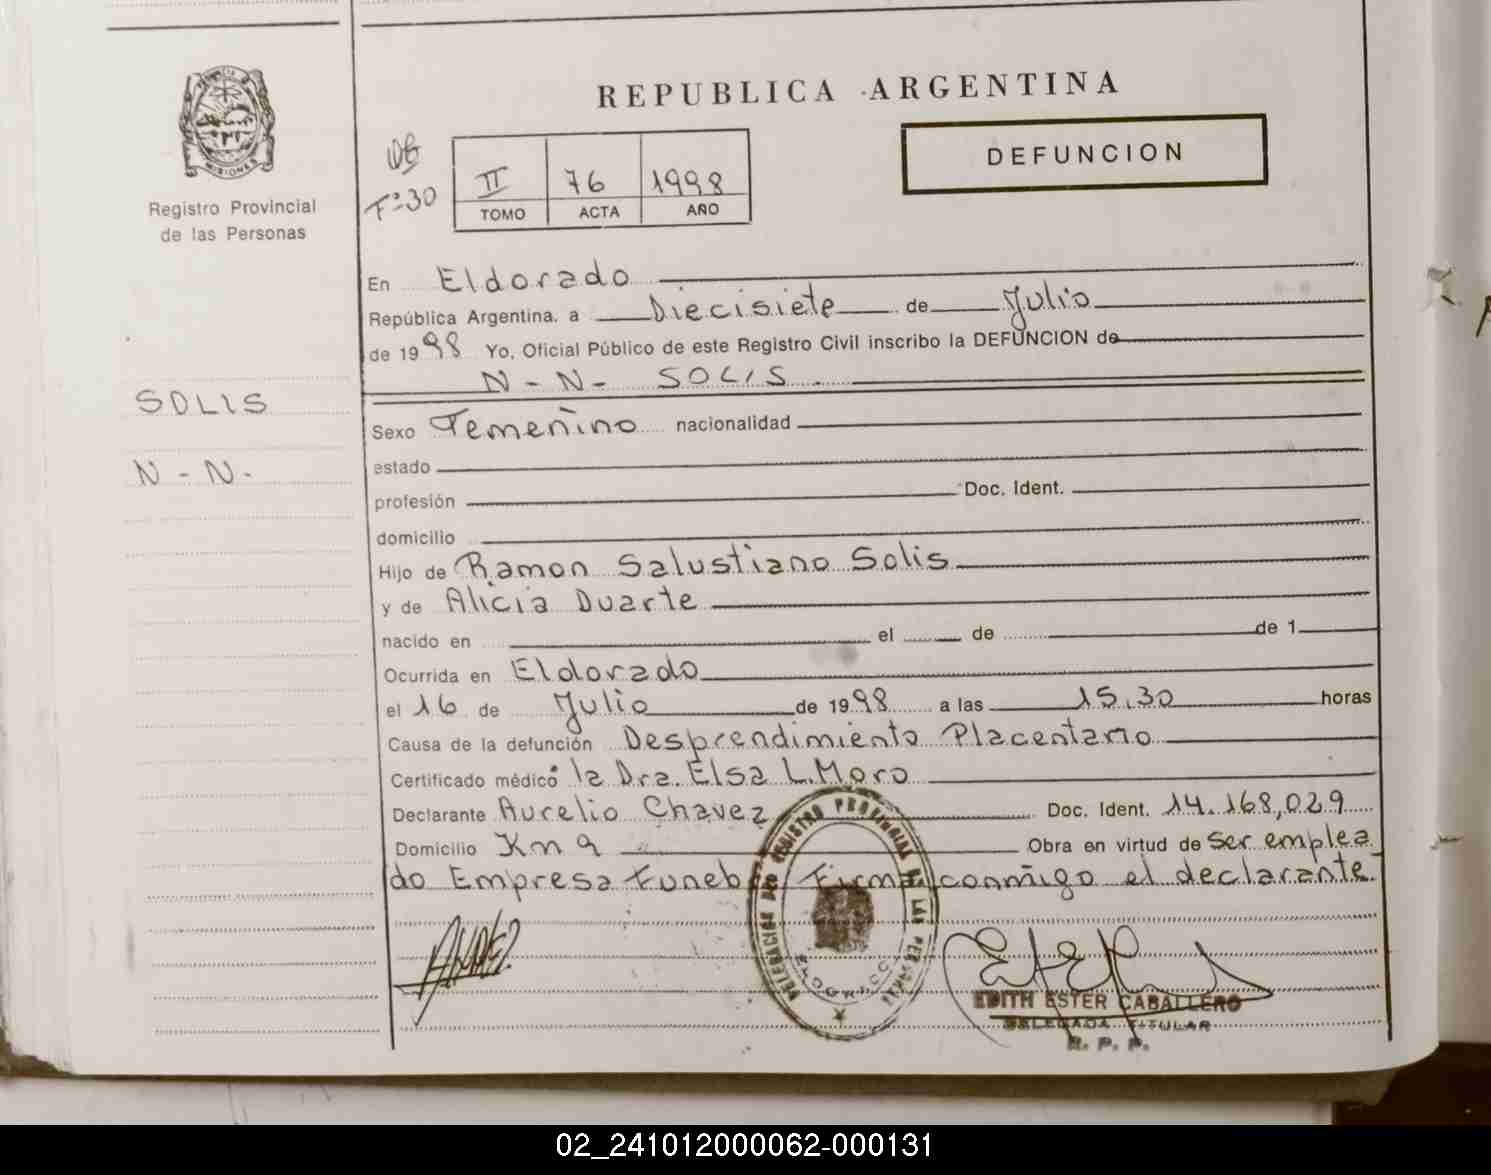 REPUBLICA ARGENTINA
PROVINCIA DE MISIONES
Registro Provincial
de las Personas
Fº 30
II 76 1998
TOMO ACTA AÑO
DEFUNCION
En Eldorado
República Argentina. a Diecisiete de Julio
de 1998 Yo, Oficial Público de este Registro Civil inscribo la DEFUNCION de
N - N - SOLIS
SOLIS
N - N -
Sexo Femenino nacionalidad
estado
profesión Doc. Ident.
domicilio
Hijo de Ramon Salustiano Solis
y de Alicia Duarte
nacido en el de de 1
Ocurrida en Eldorado
el 16 de Julio de 1998 a las 15,30 horas
Causa de la defunción Desprendimiento Placentario
Certificado médico la Dra. Elsa L. Moro
Declarante Aurelio Chavez Doc. Ident. 14.168,029
Domicilio Km 9 Obra en virtud de ser emplea
do Empresa Funeb Firma conmigo el declarante.
DELEGACION DEL REGISTRO PROVINCIAL DE LAS PERSONAS
ELDORADO
EDITH ESTER CABALLERO
DELEGADA TITULAR
R. P. P.
02_241012000062-000131